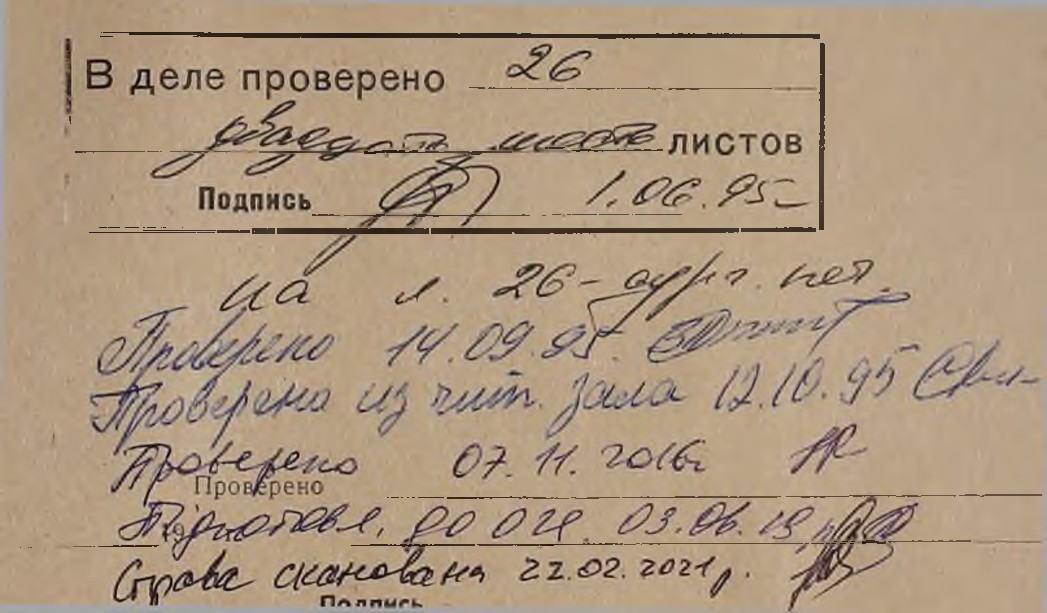 В деле проверено 26
двадцать шесть листов
Подпись 1.06.95
на л. 26- нет.
Проверено 14.09.95.
Проверено из чит. зала 12.10.95
Проверено 07.11.2016г
Проверено
Підготовл. до оцг. 03.06.19
Справа сканована 22.02.2021р.
Подпись